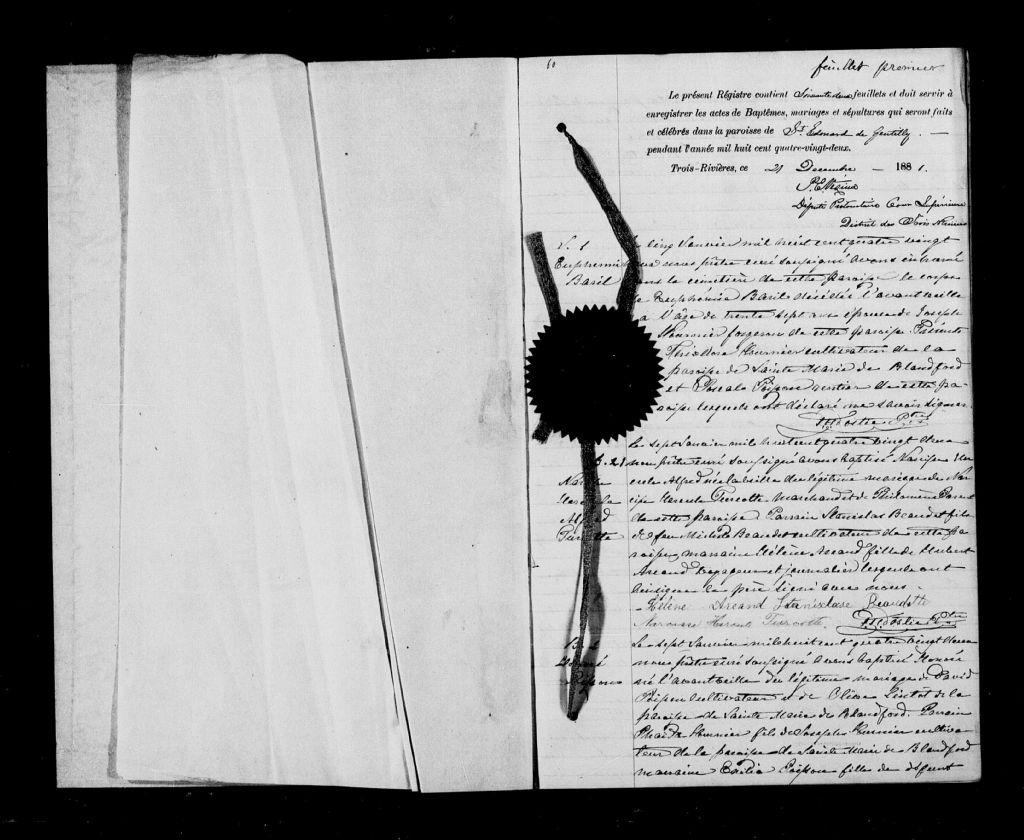 60
feuillet premier
Le présent Régistre contient Soixante deux feuillets et doit servir à
enregistrer les actes de Baptêmes, mariages et sépultures qui seront faits
et célébrés dans la paroisse de St. Edouard de Gentilly. —
pendant l'année mil huit cent quatre-vingt-deux.
Trois-Rivières, ce 21 Decembre — 1881.
Député Protonotaire Cour Supérieure
District des Trois Rivières
S. 1
Euphemie
Baril
Le cinq Janvier mil huit cent quatre vingt
deux nous prêtre curé soussigné avons inhumé
dans le cimetière de cette paroisse le corps
de Euphémie Baril décédée l'avant veille
à l'âge de trente sept ans épouse de Joseph
Fournier forgeron de cette paroisse. Présents
Théodore Fournier cultivateur de la
paroisse de Sainte Marie de Blandford
et Pascale Poisson rentier de cette pa-
roisse lesquels ont déclaré ne savoir signer.
Ptre
B. 1
Narcisse
Hercule
Alfred
Turcotte
Le sept Janvier mil huit cent quatre vingt deux
nous prêtre curé soussigné avons baptisé Narcisse Her
cule Alfred né la veille du légitime mariage de Nar
cisse Hercule Turcotte Marchand et de Philomène
de cette paroisse. Parrain Stanislas Beaudet fils
de feu Michel Beaudet cultivateur de cette pa-
roisse, marraine Hélène Arcand fille de Hubert
Arcand Voyageur et journalier lesquels ont
ainsi que le père signé avec nous.
Hélène Arcand Stanislase Beaudette
Narcisse Hercule Turcotte Ptre
B. 2
Honoré
Poisson
Le sept Janvier mil huit cent quatre vingt deux
nous prêtre curé soussigné avons baptisé Honoré
né l'avant veille du légitime mariage de David
Poisson cultivateur et de Elise de la
paroisse de Sainte Marie de Blandford. Parrain
Fournier fils de Joseph Fournier cultiva-
teur de la paroisse de Sainte Marie de Blandford
marraine Poisson fille de défunt